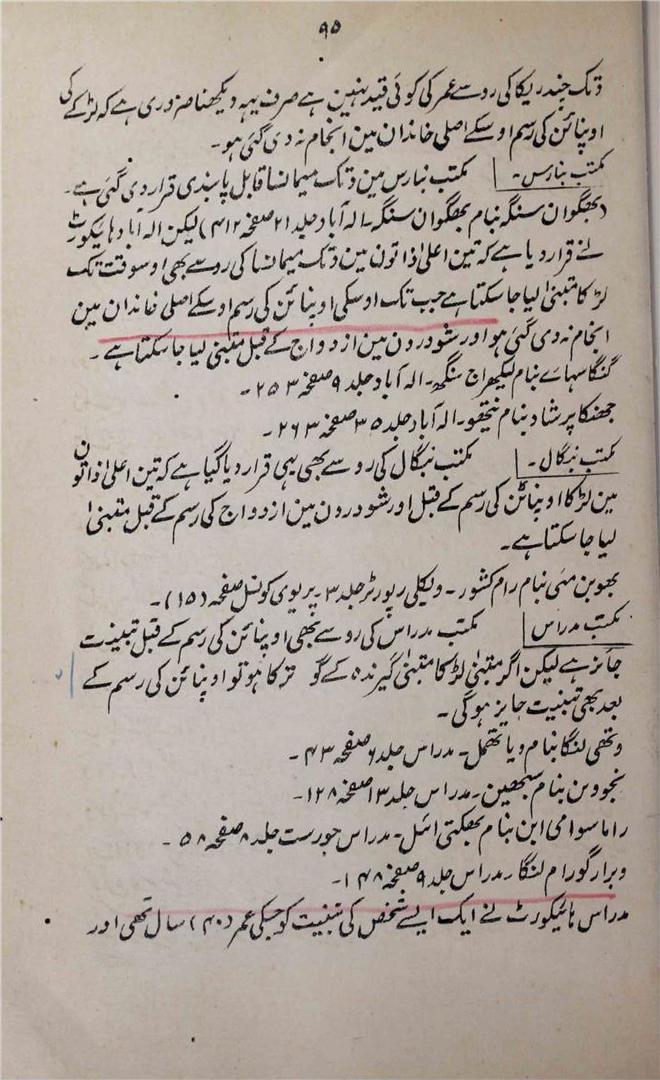 ۹۵
دتک چندریکا کی روسے عمر کی کوئی قید نہین ہے صرف یہہ دیکھنا ضروری ہے کہ لڑکے کی
اوپنائن کی رسم اوسکے اصلی خاندان مین انجام نہ دی گئی ہو۔
مکتب بنارس۔ مکتب بنارس مین دتک میمانسا قابل پابندی قرار دی گئی ہے۔
(بھگوان سنگہ بنام بھگوان سنگہ۔ الہ آباد جلد ۲۱ صفحہ ۴۱۲) لیکن الہ آباد ہائیکورٹ
نے قرار دیا ہے کہ تین اعلیٰ ذاتون مین دتک میمانسا کی روسے بھی اوسوقت تک
لڑکا متبنیٰ لیا جا سکتا ہے جب تک اوسکی اوپنائن کی رسم اوسکے اصلی خاندان مین
انجام نہ دی گئی ہو اور شودرون مین ازدواج کے قبل متبنیٰ لیا جا سکتا ہے۔
گنگا سہاے بنام لیکھراج سنگھ۔ الہ آباد جلد ۹ صفحہ ۲۵۳۔
جھنکا پرشاد بنام نتھو۔ الہ آباد جلد ۳۵ صفحہ ۲۶۳۔
مکتب بنگال۔ مکتب بنگال کی روسے بھی یہی قرار دیا گیا ہے کہ تین اعلیٰ ذاتون
مین لڑکا اوپنائن کی رسم کے قبل اور شودرون مین ازدواج کی رسم کے قبل متبنیٰ
لیا جا سکتا ہے۔
بھوبن مئی بنام رام کشور۔ ویکلی رپورٹر جلد ۳۔ پریوی کونسل صفحہ (۱۵)۔
مکتب مدراس مکتب مدراس کی روسے بھی اوپنائن کی رسم کے قبل تبنیت
جائز ہے لیکن اگر متبنیٰ لڑکا متبنیٰ گیرندہ کے گوترکا ہو تو اوپنائن کی رسم کے
بعد بھی تبنیت جایز ہوگی۔
وتھی لنگا بنام ویاتھمل۔ مدراس جلد ۶ صفحہ ۴۳۔
بنام سبھین۔ مدراس جلد ۱۳ صفحہ ۱۲۸۔
راما سوامی ابن بنام بھگتی امل۔ مدراس جورست جلد ۸ صفحہ ۵۸۔
ویرارگو رام لنگا۔ مدراس جلد ۹ صفحہ ۱۴۸۔
مدراس ہائیکورٹ نے ایک ایسے شخص کی تبنیت کو جسکی عمر (۴۰) سال تھی اور